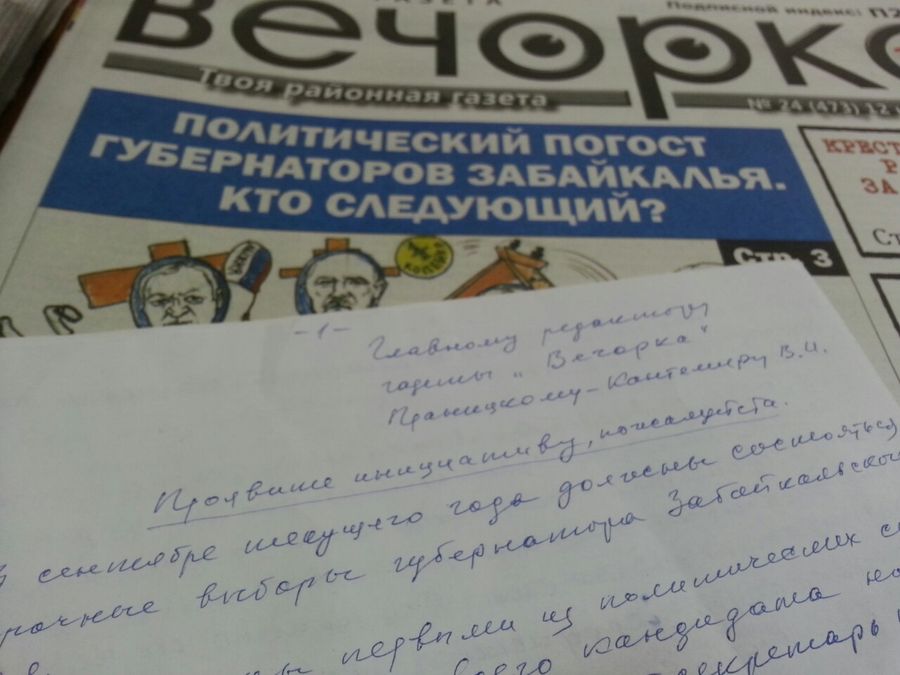 ГАЗЕТА
Подписной индекс: П2
вечорка
Твоя районная газета
№ 24 (473) 12
ПОЛИТИЧЕСКИЙ ПОГОСТ
ГУБЕРНАТОРОВ ЗАБАЙКАЛЬЯ.
КТО СЛЕДУЮЩИЙ?
КРЕСТ
Р
ЗА
Ст
Стр. 3
-1-
Главному редактору
газеты „Вечорка"
Праницкому-Кантемиру В.И.
Проявите инициативу, пожалуйста.
В сентябре текущего года должны состояться
срочные выборы губернатора Забайкальског
первыми из политических с
своего кандидата на
секретарь